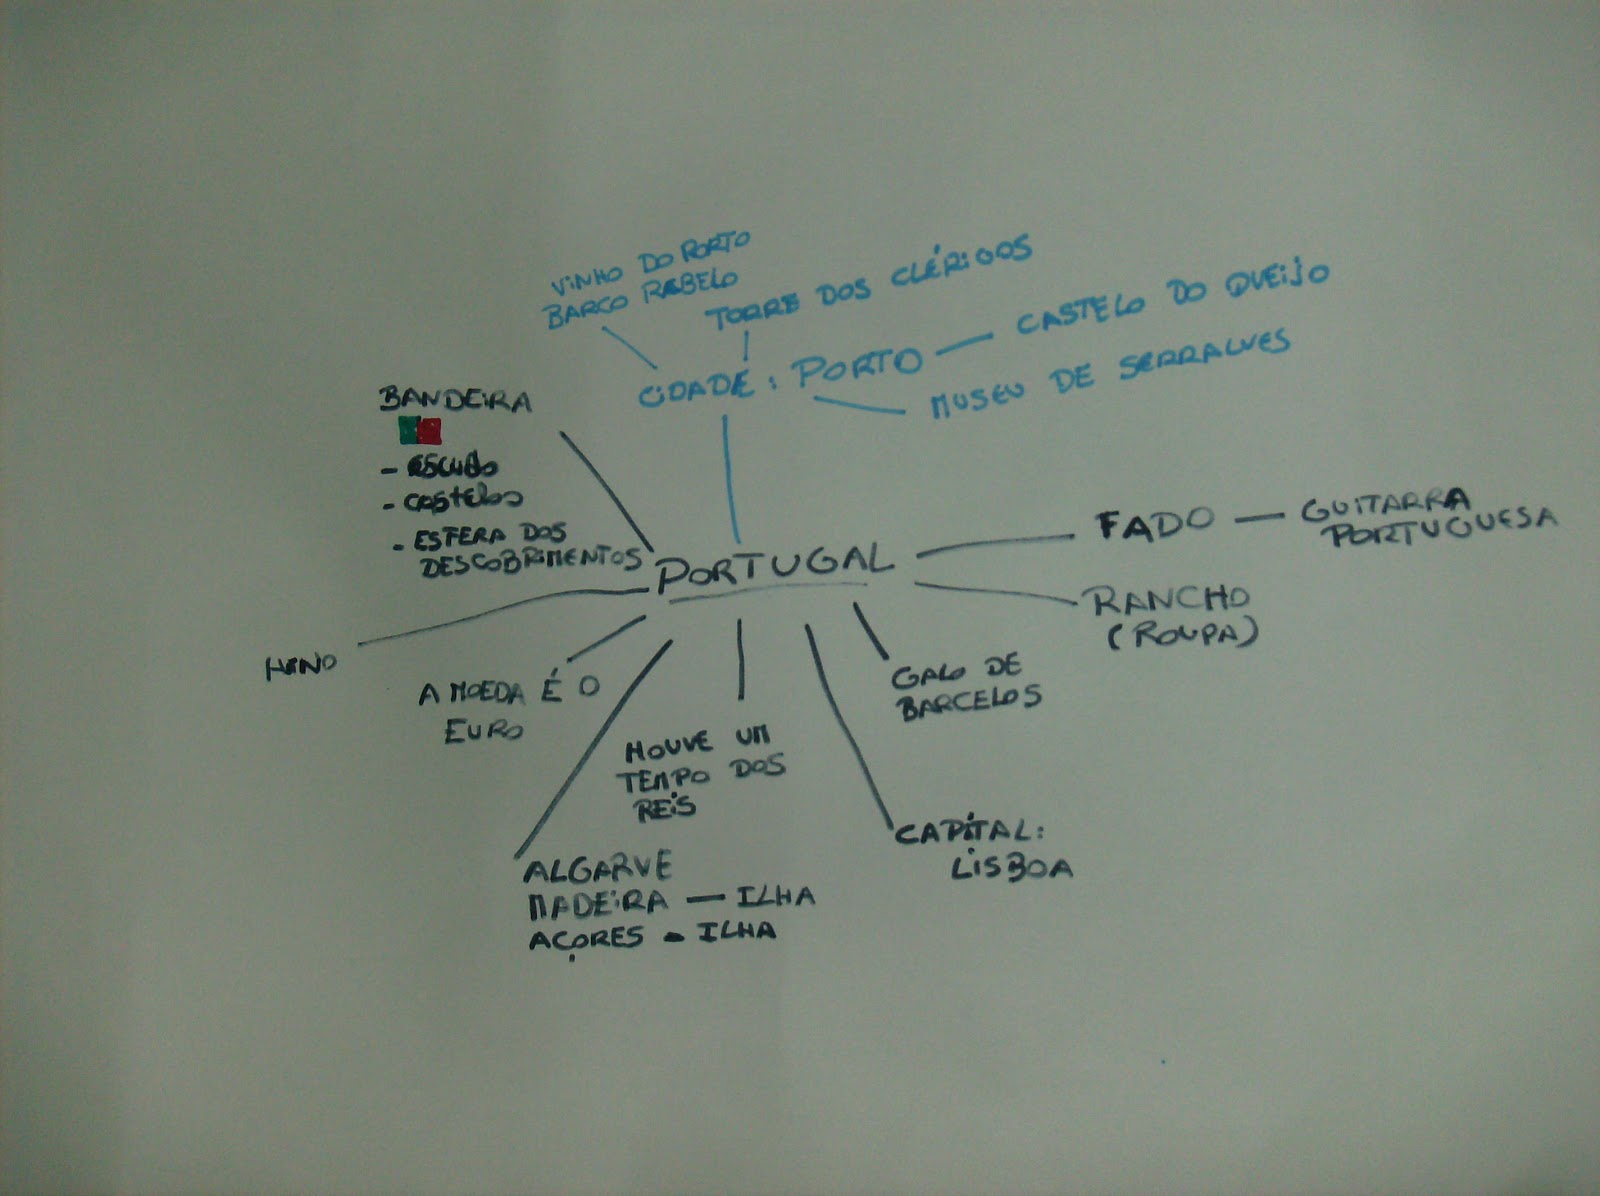 VINHO DO PORTO
BARCO RABELO
TORRE DOS CLÉRIGOS
CIDADE: PORTO — CASTELO DO QUEIJO
MUSEU DE SERRALVES
BANDEIRA
- ESCUDO
- CASTELOS
- ESFERA DOS
DESCOBRIMENTOS
PORTUGAL
FADO — GUITARRA
PORTUGUESA
RANCHO
(ROUPA)
HINO
A MOEDA É O
EURO
HOUVE UM
TEMPO DOS
REIS
GALO DE
BARCELOS
CAPITAL:
LISBOA
ALGARVE
MADEIRA — ILHA
AÇORES - ILHA